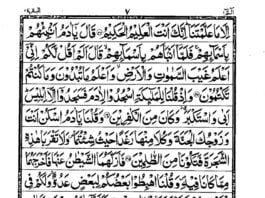 ٧
اِلَّا مَا عَلَّمْتَنَا اِنَّكَ اَنْتَ الْعَلِيْمُ الْحَكِيْمُ قَالَ يٰۤاٰدَمُ اَنْۢبِئْهُمْ
بِاَسْمَآئِهِمْ فَلَمَّاۤ اَنْۢبَاَهُمْ بِاَسْمَآئِهِمْ قَالَ اَلَمْ اَقُلْ لَّكُمْ اِنِّیْۤ
اَعْلَمُ غَيْبَ السَّمٰوٰتِ وَالْاَرْضِ وَاَعْلَمُ مَا تُبْدُوْنَ وَمَا كُنْتُمْ
تَكْتُمُوْنَ وَاِذْ قُلْنَا لِلْمَلٰٓئِكَةِ اسْجُدُوْا لِاٰدَمَ فَسَجَدُوْۤا اِلَّاۤ اِبْلِيْسَ
اَبٰی وَاسْتَكْبَرَ وَكَانَ مِنَ الْكٰفِرِيْنَ وَقُلْنَا يٰۤاٰدَمُ اسْكُنْ اَنْتَ
وَزَوْجُكَ الْجَنَّةَ وَكُلَا مِنْهَا رَغَدًا حَيْثُ شِئْتُمَا وَلَا تَقْرَبَا هٰذِهِ
الشَّجَرَةَ فَتَكُوْنَا مِنَ الظّٰلِمِيْنَ فَاَزَلَّهُمَا الشَّيْطٰنُ عَنْهَا فَاَخْرَجَهُمَا
مِمَّا كَانَا فِيْهِ وَقُلْنَا اهْبِطُوْا بَعْضُكُمْ لِبَعْضٍ عَدُوٌّ وَلَكُمْ فِی